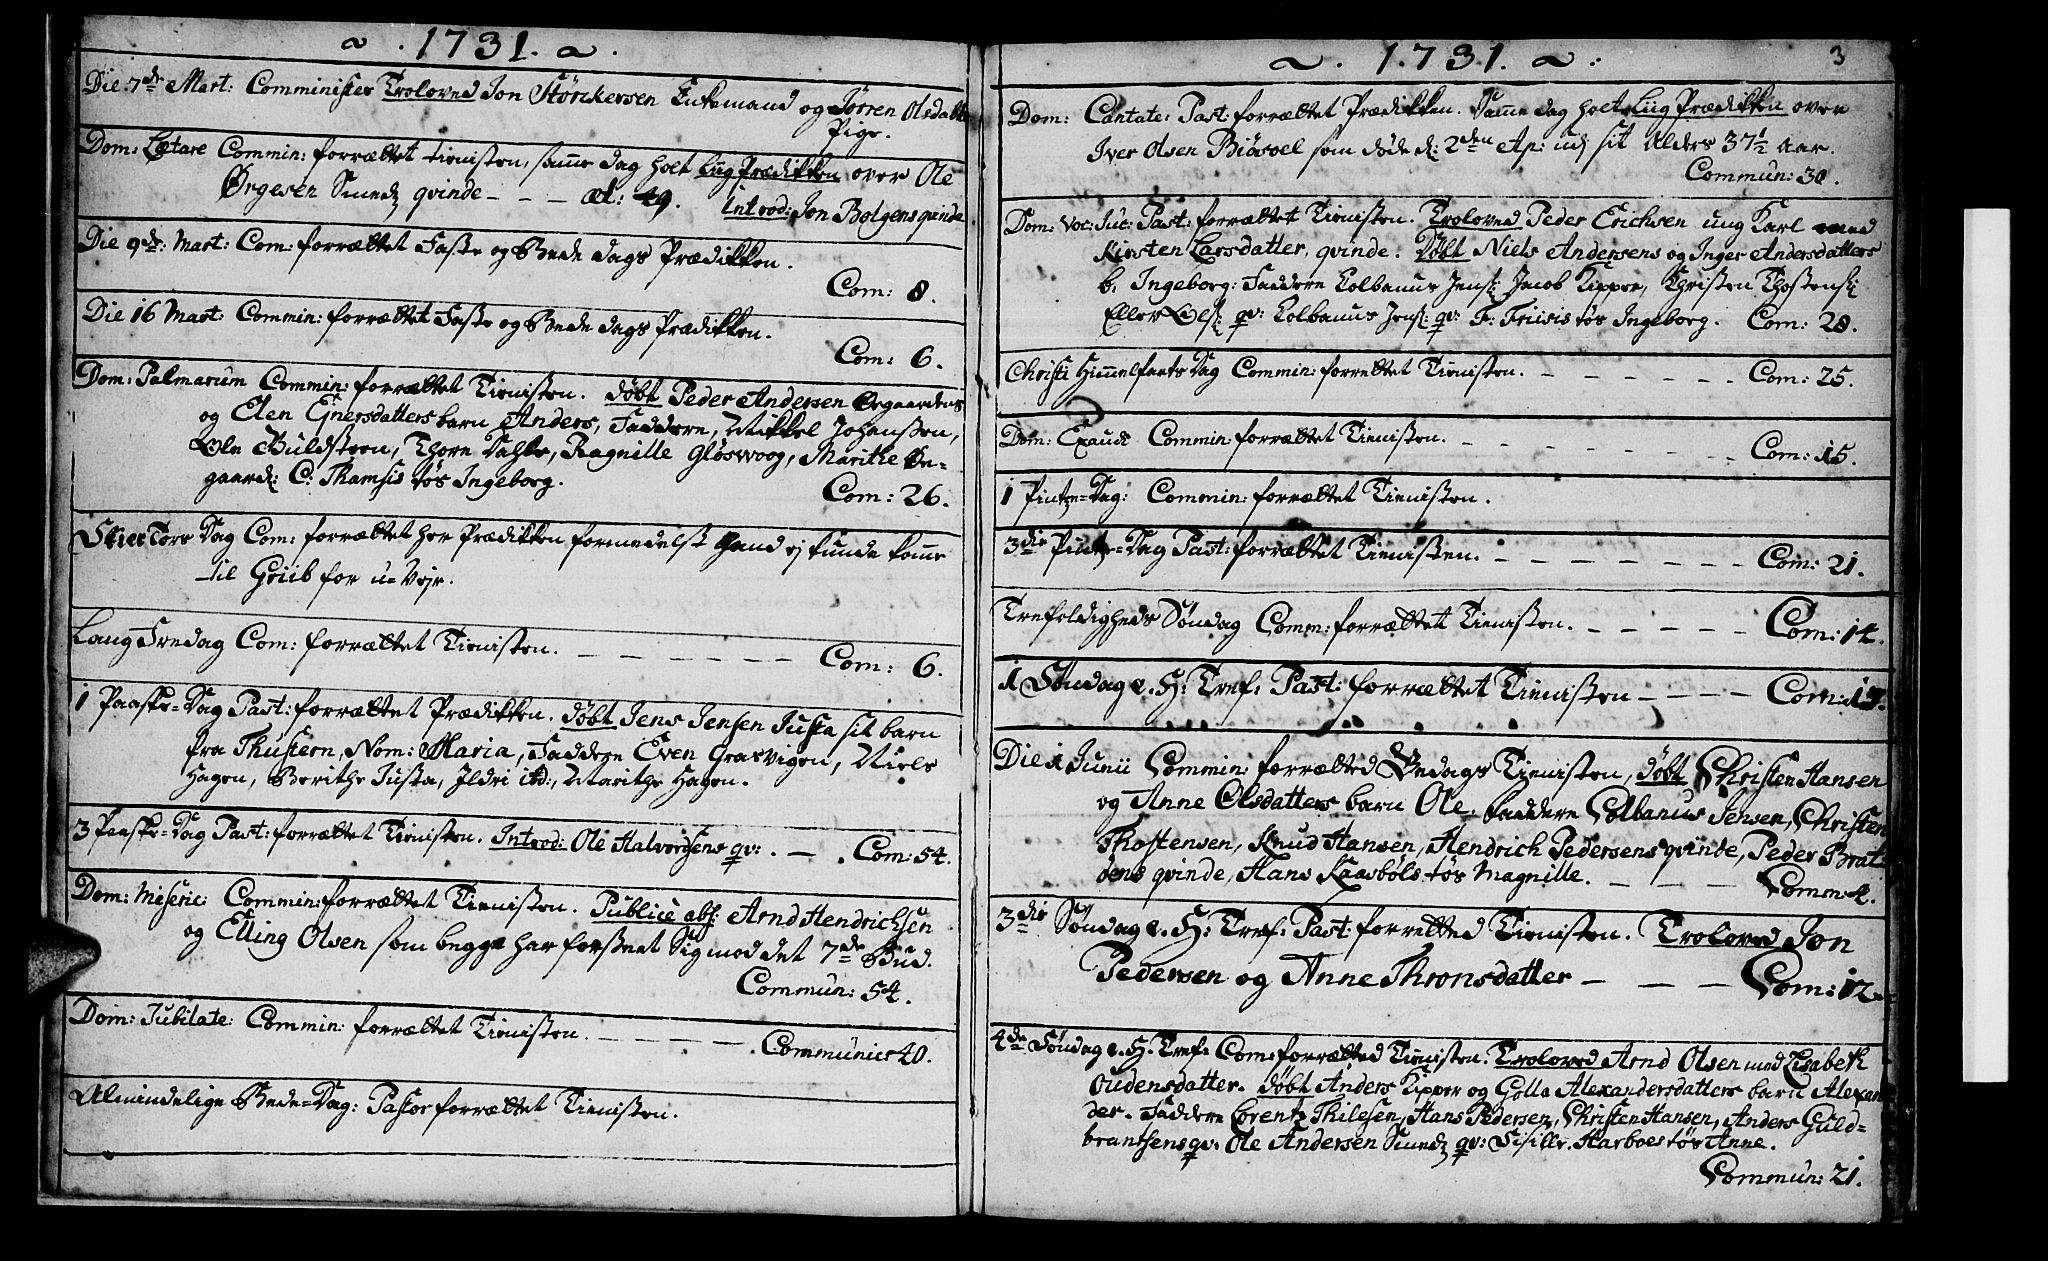 ~ . 1731. ~ .
Die 7de Mart: Comminister Troloved Jon Störckersen Enkemand og Sören Olsdatter
Pige.
Dom: Lætare Commin: forrættet tienisten, samme dag holt Liig Prædikken over Ole
Ørgesen Smedz qvinde - - - æt: 49. Introd: Jon Bolgens qvinde
Die 9de Mart: Com: forrættet Faste og Bede dags Prædikken.
Com: 8.
Die 16 Mart: Commin: forrættet Faste og Bede dags Prædikken.
Com: 6.
Dom: Palmarum Commin: forrættet Tienisten. döbt Peder Andersen Ørgaardens
og Elen Ejnersdatters barn Anders, Faddere, Mikkel Johansen,
Ole Buldsteen, Thore Dahle, Ragnille Glöswoog, Marithe Ør-
gaard: C: Thamsis tös Ingeborg.
Com: 26.
Skier Tors Dag Com: forrættet her Prædikken formedelst Hand ej kunde komme
til Griib for u-Vejr.
Lang Fredag Com: forrættet Tienisten. - - - - - - Com: 6.
1 Paaske-Dag Past: forrættet Prædikken. döbt Jens Jensen Justa sit barn
fra Thustern, Nom: Maria, Faddere Even Grasvigen, Niels
Hagen, Berithe Justa, Ildri itd:, Marithe Hagen.
3 Paaske-Dag Past: forrættet Tienisten. Introd: Ole Halvorsens qv: . - . Com: 54.
Dom: Miseric: Commin: forrættet Tienisten. Publice abs: Arnd Hendrichsen
og Elling Olsen som begge har forseet Sig mod det 7de Bud.
Commun: 54.
Dom: Jubilate: Commin: forrættet Tienisten. - - - - - Communic: 40.
Almindelige Bede-Dag: Pastor forrættet Tienisten.
~ . 1731. ~ .
3
Dom: Cantate: Past: forrættet Prædikken. Samme dag holt Liig Prædikken over
Iver Olsen Biösvel som döde d: 2den Ap: udj sit Alders 37½ Aar.
Commun: 30.
Dom: Voc: Juc: Past: forrættet Tienisten. Troloved Peder Erichsen ung Karl med
Kirsten Larsdatter, qvinde. Döbt Niels Andersens og Inger Andersdatters
b. Ingeborg: Faddere Colbanus Jens: Jacob Kipper, Christen Thostens:
Eller Ols: qv: Colbanus Jens: qv: F: Friisis tös Ingeborg. Com: 28.
Christi Himmelfarts Dag Commin: forrettet Tienisten. - - - - - - Com: 25.
Dom: Exaudi Commin: forrættet Tienisten. - - - - - - Com: 15.
1 Pintze-Dag: Commin: forrættet Tienisten.
3die Pintze-Dag Past: forrættet Tienisten. - - - - - - Com: 21.
Trefoldigheds Söndag Comm: forrættet Tienisten. - - - - - Com: 14.
1 Söndag e. H: Tref: Past: forrættet Tienisten - - - - Com: 13.
Die 1 Junii Commin: forrætted Bedags Tienisten, döbt Christen Hansen
og Anne Olsdatters barn Ole. Faddere Colbanus Jensen, Christen
Thostensen, Knud Hansen, Hendrich Pedersens qvinde, Peder Brat-
dens qvinde, Hans Kaasböls tös Magnille. - - - - Comm: 4.
3die Söndag e. H: Tref: Past: forrætted Tienisten. Troloved Jon
Pedersen og Anne Thronsdatter - - - - Com: 12.
4de Söndag e. H: Tref: Com: forrætted Tienisten. Troloved Arnd Olsen med Lisabeth
Oudensdatter. döbt Anders Kipper og Golla Alexandersdatters barn Alexan
der. Faddere Lorentz Thilesen, Hans Pedersen, Christen Hansen, Anders Guld-
brantsens qv: Ole Andersen Smedz qv: Sisille Harboes tös Anne.
Commun: 21.